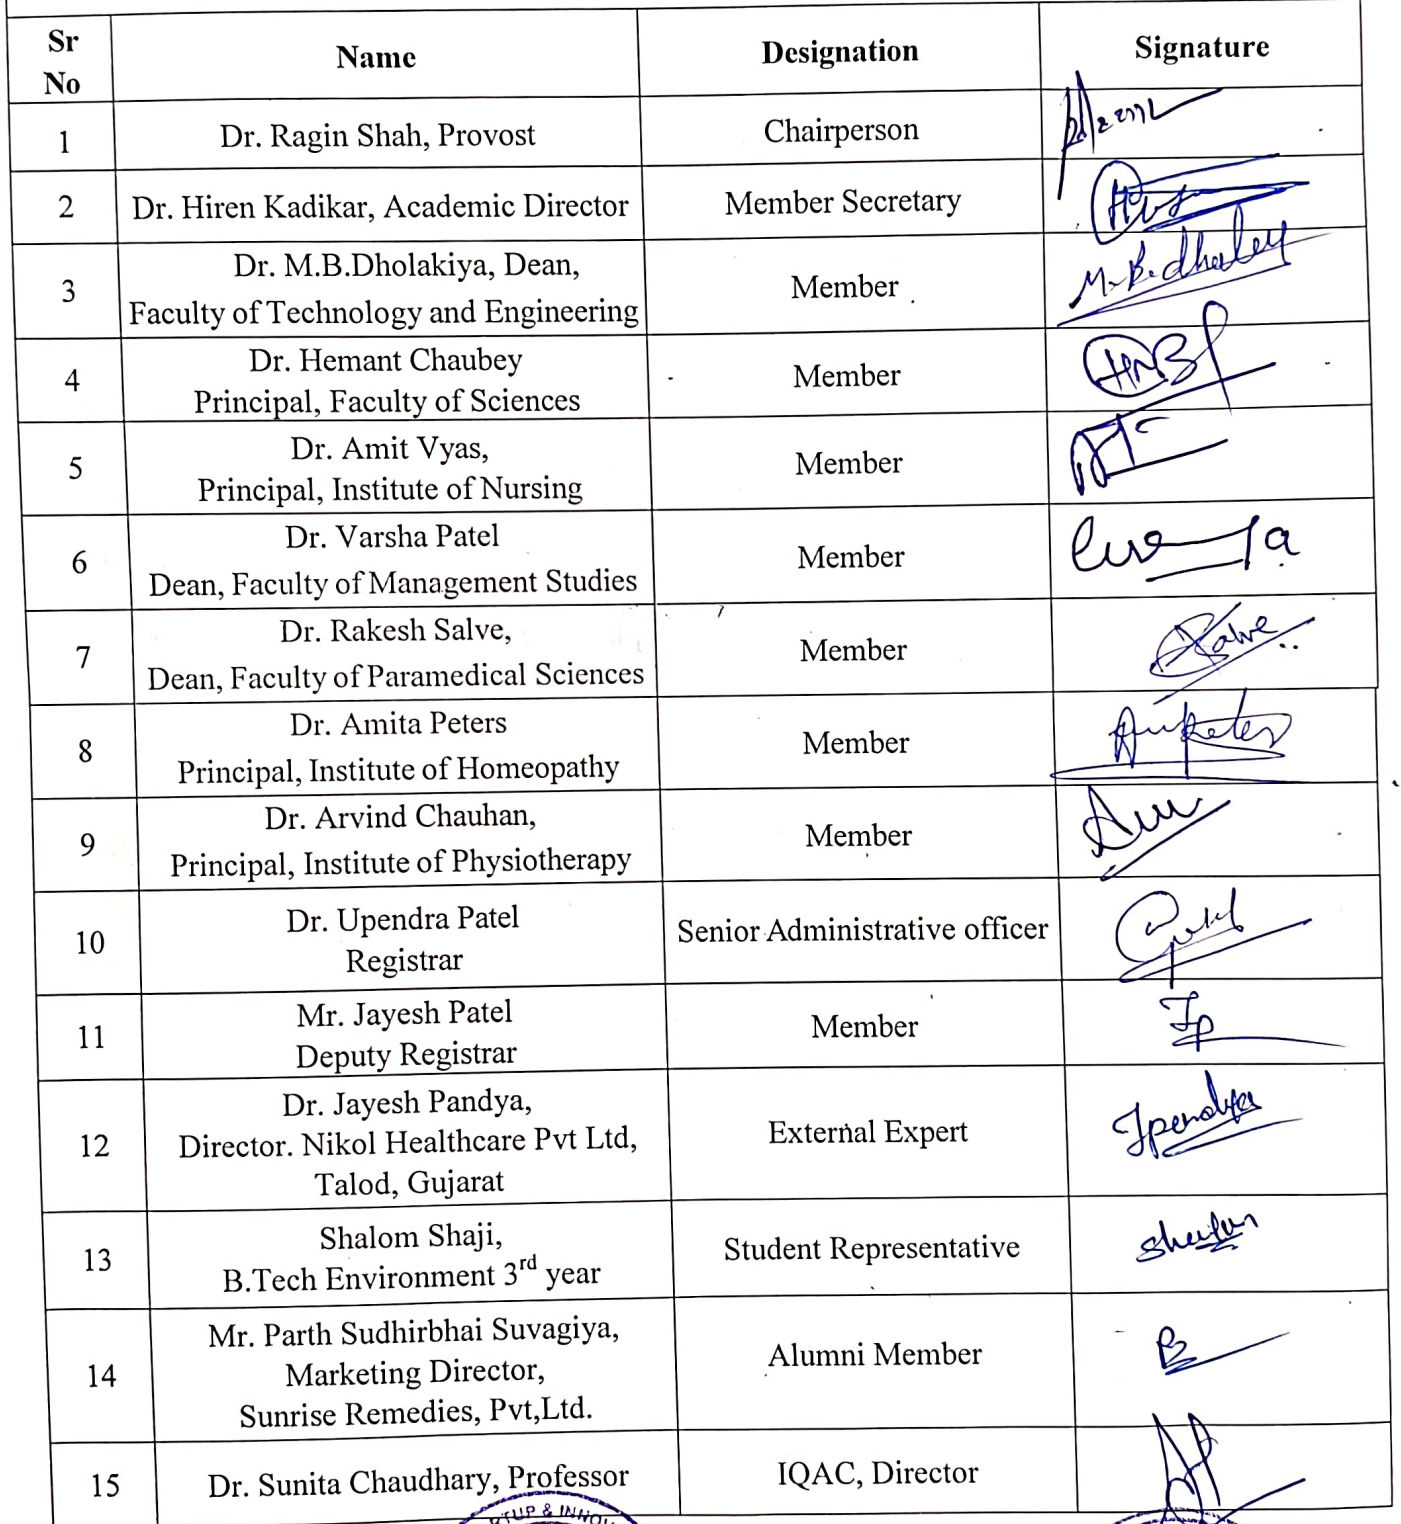 Sr No Name Designation Signature
1 Dr. Ragin Shah, Provost Chairperson
2 Dr. Hiren Kadikar, Academic Director Member Secretary
3 Dr. M.B.Dholakiya, Dean,
Faculty of Technology and Engineering Member M.B.dholey
4 Dr. Hemant Chaubey
Principal, Faculty of Sciences Member
5 Dr. Amit Vyas,
Principal, Institute of Nursing Member
6 Dr. Varsha Patel
Dean, Faculty of Management Studies Member
7 Dr. Rakesh Salve,
Dean, Faculty of Paramedical Sciences Member Salve
8 Dr. Amita Peters
Principal, Institute of Homeopathy Member
9 Dr. Arvind Chauhan,
Principal, Institute of Physiotherapy Member
10 Dr. Upendra Patel
Registrar Senior Administrative officer
11 Mr. Jayesh Patel
Deputy Registrar Member JP
12 Dr. Jayesh Pandya,
Director. Nikol Healthcare Pvt Ltd,
Talod, Gujarat External Expert Jpandya
13 Shalom Shaji,
B.Tech Environment 3rd year Student Representative
14 Mr. Parth Sudhirbhai Suvagiya,
Marketing Director,
Sunrise Remedies, Pvt,Ltd. Alumni Member
15 Dr. Sunita Chaudhary, Professor IQAC, Director